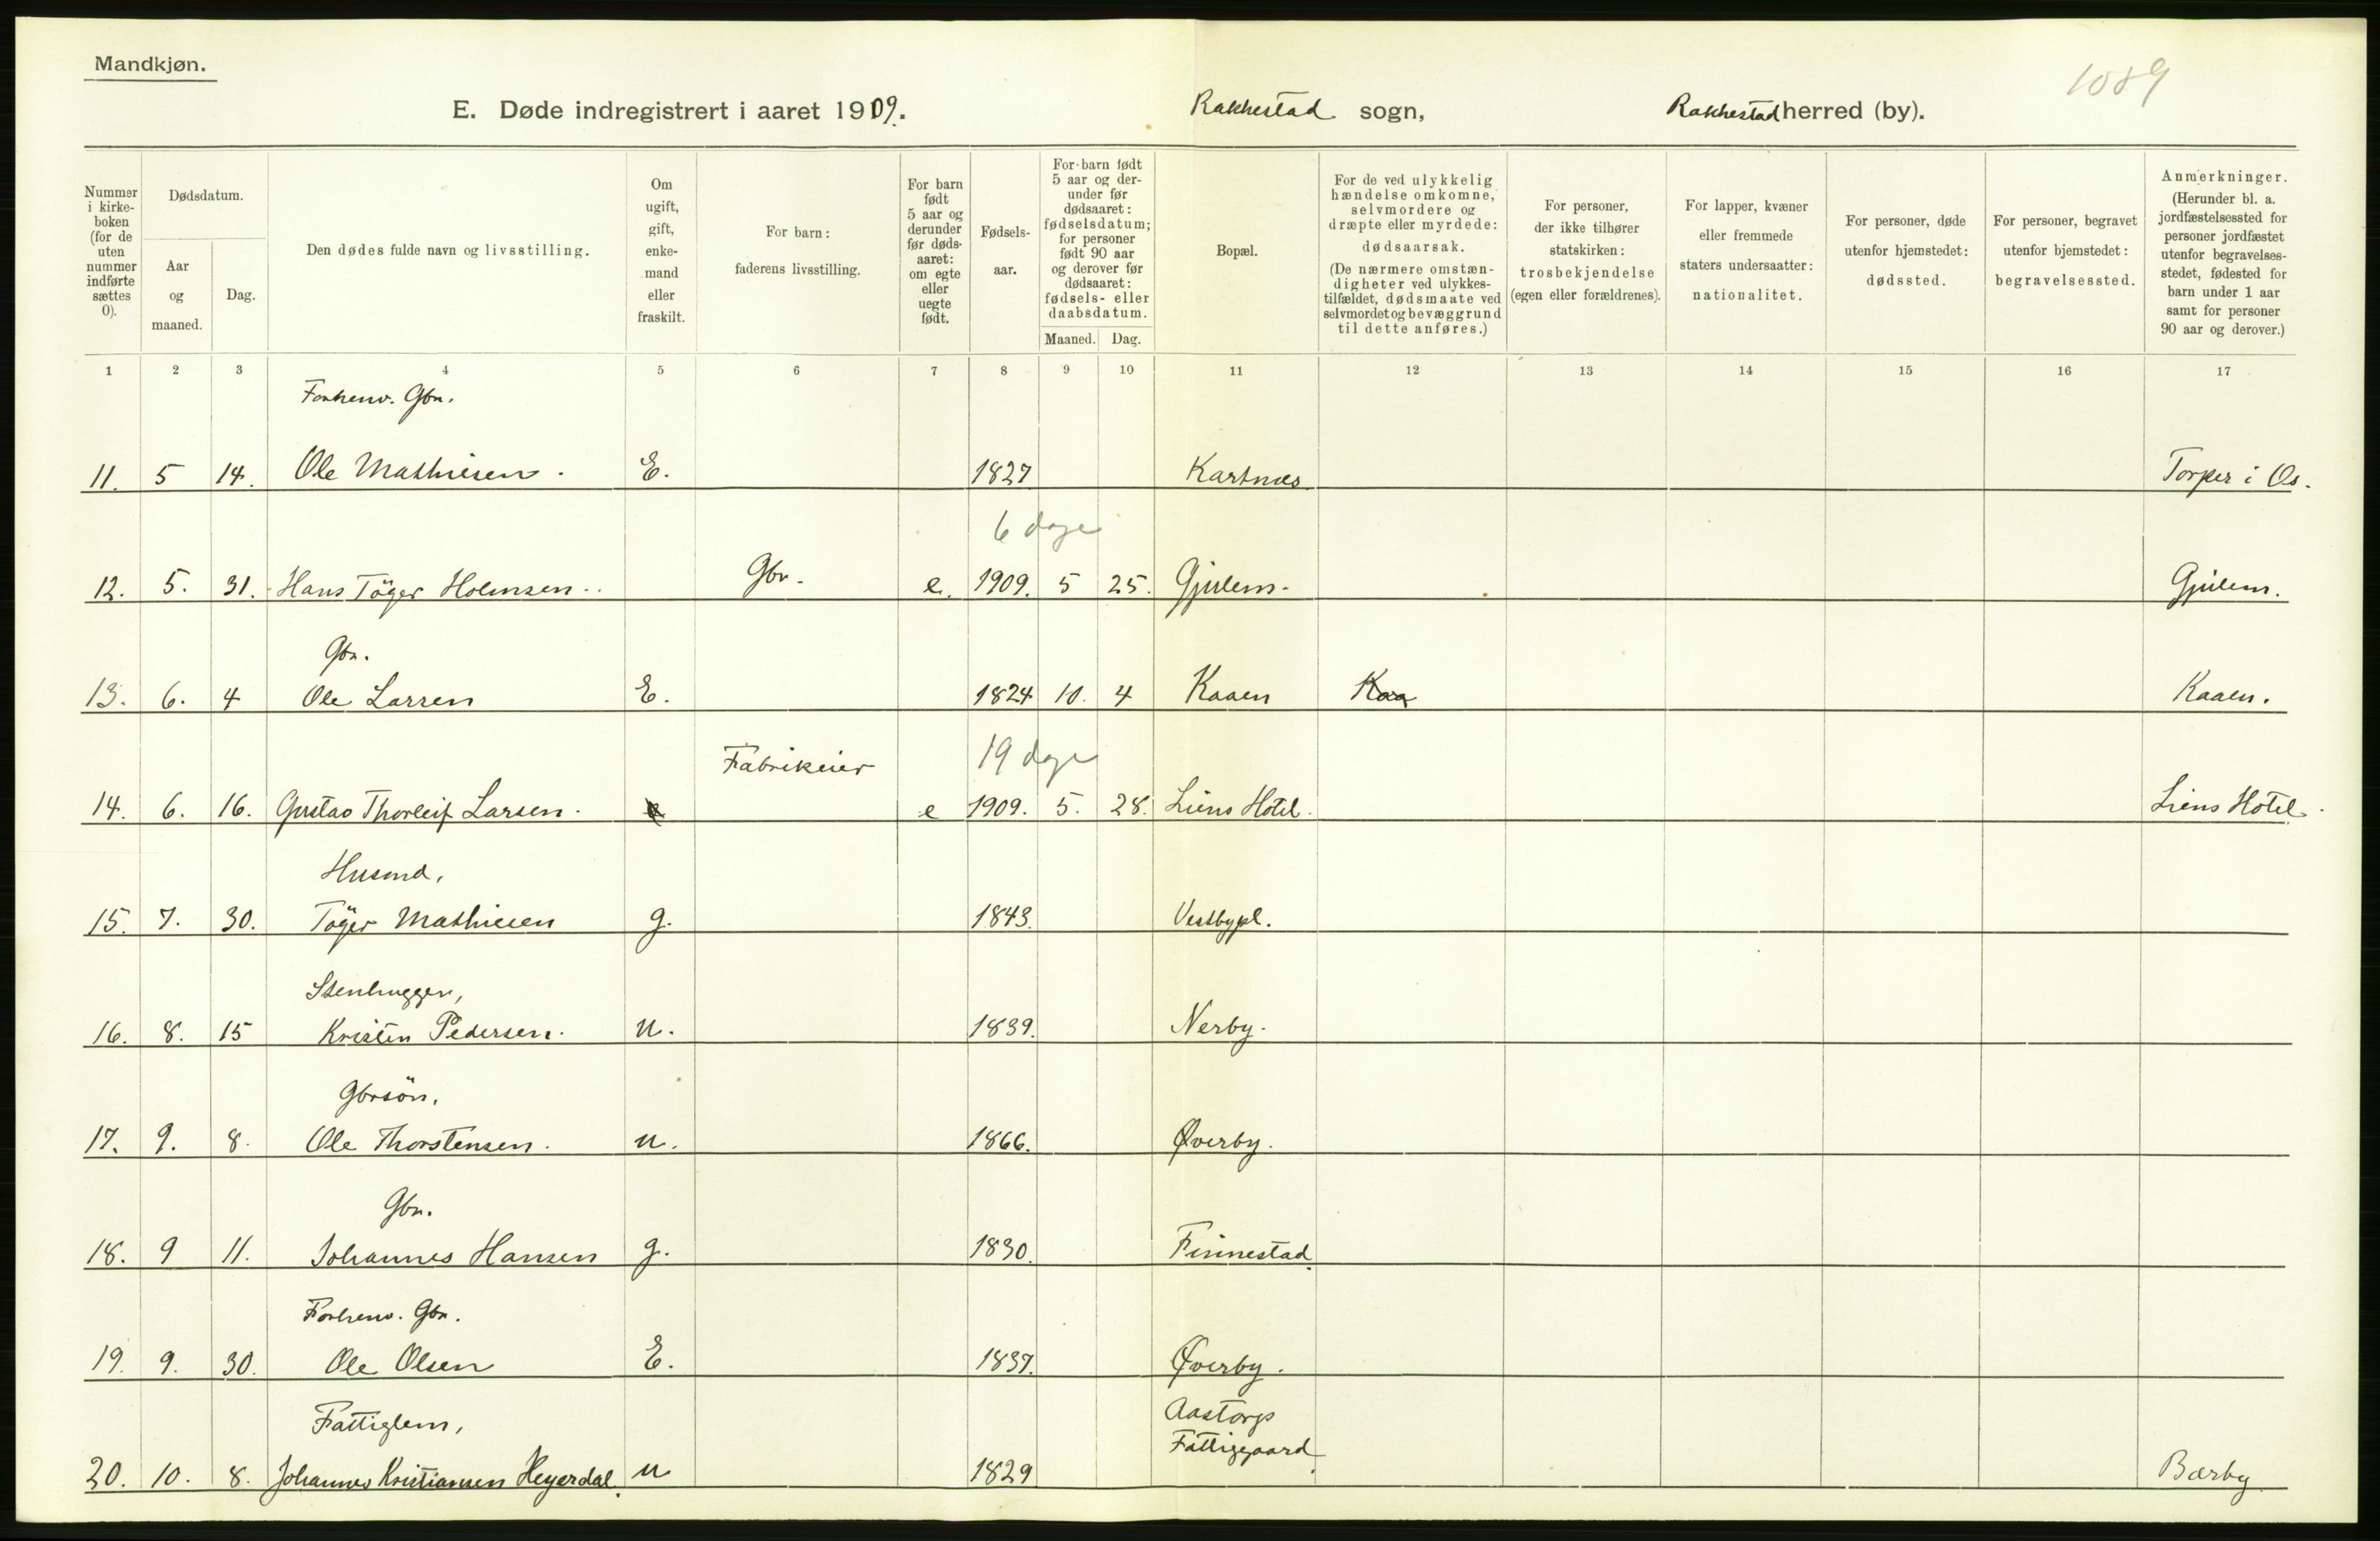 Mandkjøn.
1089
E. Døde indregistrert i aaret 1909. Rakkestad sogn, Rakkestad herred (by).
Nummer
i kirke-
boken
(for de
uten
nummer
indførte
sættes
0).
Dødsdatum.
Aar
og
maaned.
Dag.
Den dødes fulde navn og livsstilling.
Om
ugift,
gift,
enke-
mand
eller
fraskilt.
For barn:
faderens livsstilling.
For barn
født
5 aar og
derunder
før døds-
aaret:
om egte
eller
uegte
født.
Fødsels-
aar.
For barn født
5 aar og der-
under før
dødsaaret:
fødselsdatum;
for personer
født 90 aar
og derover før
dødsaaret:
fødsels- eller
daabsdatum.
Maaned. Dag.
Bopæl.
For de ved ulykkelig
hændelse omkomne,
selvmordere og
dræpte eller myrdede:
dødsaarsak.
(De nærmere omstæn-
digheter ved ulykkes-
tilfældet, dødsmaate ved
selvmordet og bevæggrund
til dette anføres.)
For personer,
der ikke tilhører
statskirken:
trosbekjendelse
(egen eller forældrenes).
For lapper, kvæner
eller fremmede
staters undersaatter:
nationalitet.
For personer, døde
utenfor hjemstedet:
dødssted.
For personer, begravet
utenfor bjemstedet:
begravelsessted.
Anmerkninger.
(Herunder bl. a.
jordfæstelsessted for
personer jordfæstet
utenfor begravelses-
stedet, fødested for
barn under 1 aar
samt for personer
90 aar og derover.)
1 2 3 4 5 6 7 8 9 10 11 12 13 14 15 16 17
Forhenv. Gbr.
11. 5 14. Ole Mathiesen. E. 1827 Kartnes Torper i Os.
6 dage
12. 5. 31. Hans Töger Holmsen. Gbr. e. 1909. 5 25. Gjulem. Gjulem.
Gbr.
13. 6. 4 Ole Larsen E. 1824 10. 4 Kaaen Kaa Kaaen.
Fabrikeier 19 dage
14. 6. 16. Gustav Thorleif Larsen. e e 1909. 5. 28. Liens Hotel. Liens Hotel.
Husmd.
15. 7. 30. Töger Mathiesen g. 1843. Vestbypl.
Stenhugger,
16. 8. 15 Kristen Pedersen. u. 1839. Nerby.
Gbrsön.
17. 9. 8. Ole Thorstensen. u. 1866. Øverby.
Gbr.
18. 9 11. Johannes Hansen g. 1830. Finnestad.
Forhenv. Gbr.
19. 9. 30. Ole Olsen E. 1837. Øverby.
Fattiglem, Aastorp
Fattiggaard.
20. 10. 8. Johannes Kristiansen Heyerdal. u 1829 Bærby.